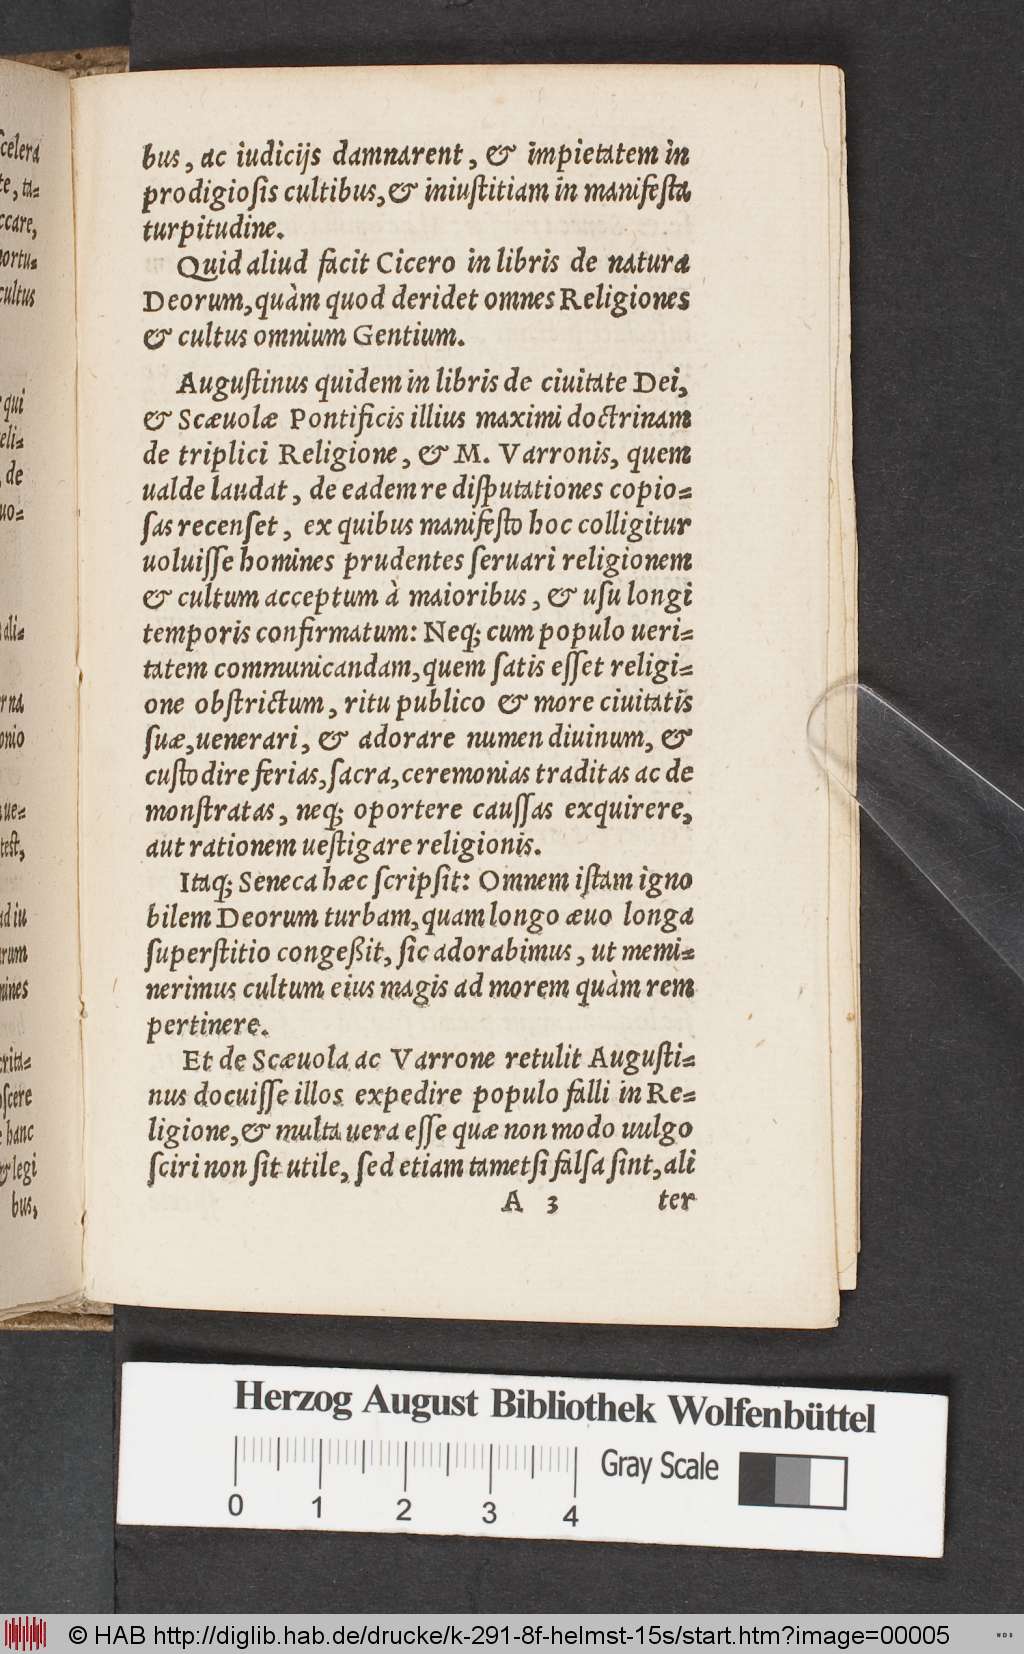 bus, ac iudicijs damnarent, & impietatem in
prodigiosis cultibus, & iniustitiam in manifesta
turpitudine.
Quid aliud facit Cicero in libris de natura
Deorum, quàm quod deridet omnes Religiones
& cultus omnium Gentium.
Augustinus quidem in libris de ciuitate Dei,
& Scæuolæ Pontificis illius maximi doctrinam
de triplici Religione, & M. Varronis, quem
ualde laudat, de eadem re disputationes copio=
sas recenset, ex quibus manifesto hoc colligitur
uoluisse homines prudentes seruari religionem
& cultum acceptum à maioribus, & usu longi
temporis confirmatum: Neq; cum populo ueri=
tatem communicandam, quem satis esset religi=
one obstrictum, ritu publico & more ciuitatis
suæ, uenerari, & adorare numen diuinum, &
custodire ferias, sacra, ceremonias traditas ac de
monstratas, neq; oportere caussas exquirere,
aut rationem uestigare religionis.
Itaq; Seneca hæc scripsit: Omnem istam igno
bilem Deorum turbam, quam longo æuo longa
superstitio congeßit, sic adorabimus, ut memi=
nerimus cultum eius magis ad morem quàm rem
pertinere.
Et de Scæuola ac Varrone retulit Augusti=
nus docuisse illos expedire populo falli in Re=
ligione, & multa uera esse quæ non modo uulgo
sciri non sit utile, sed etiam tametsi falsa sint, ali
A 3 ter
scelera
te, ta=
ccare,
portu=
cultus
qui
eli=
, de
uo=
ali=
rna
onio
ue=
test,
ad iu
rum
mines
crita=
oscere
e hanc
& legi
bus,
Herzog August Bibliothek Wolfenbüttel
Gray Scale
0 1 2 3 4
© HAB http://diglib.hab.de/drucke/k-291-8f-helmst-15s/start.htm?image=00005